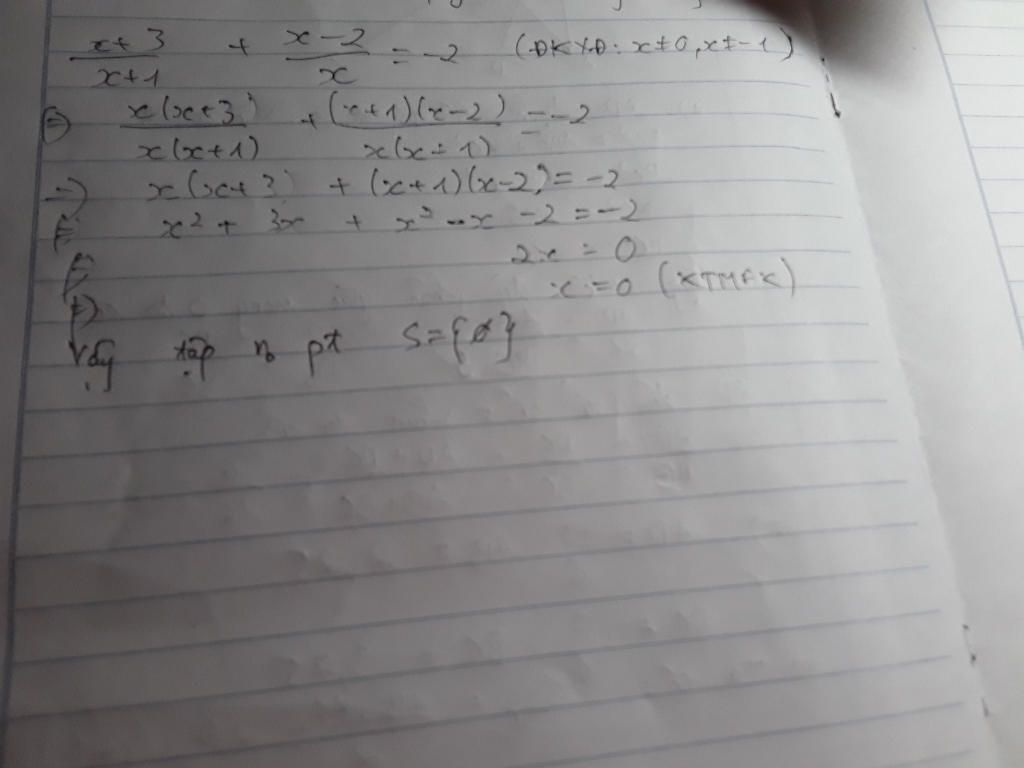 x+3/x+1 + x-2/x = -2 (ĐKXĐ: x≠0, x≠-1)
⇔ x(x+3)/x(x+1) + (x+1)(x-2)/x(x+1) = -2
⇒ x(x+3) + (x+1)(x-2) = -2
⇔ x² + 3x + x² - x - 2 = -2
⇔ 2x = 0
⇔ x = 0 (KTMĐK)
Vậy tập n₀ pt S={ø}